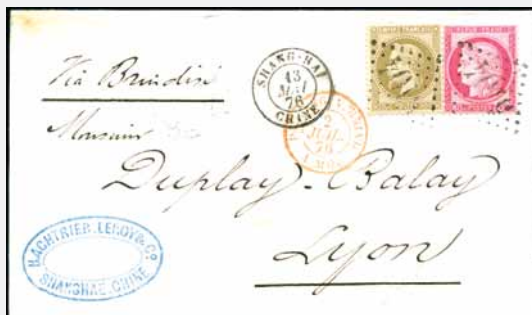 Via Brindisi
SHANG-HAI
13
76
CHINE
2
JUIL.
76
Monsieur
Duplay-Balay
Lyon
H.ACHTRIER.LEROY & Co
SHANGHAE.CHINE
EMPIRE FRANÇAIS